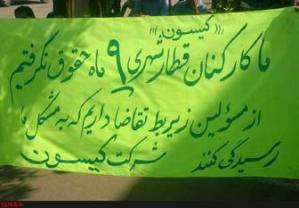 ((کیسون))
ما کارکنان قطار شهری ۹ ماه حقوق نگرفتیم
از مسئولین زیربط تقاضا داریم که به مشکل ما
رسیدگی کنند شرکت کیسون